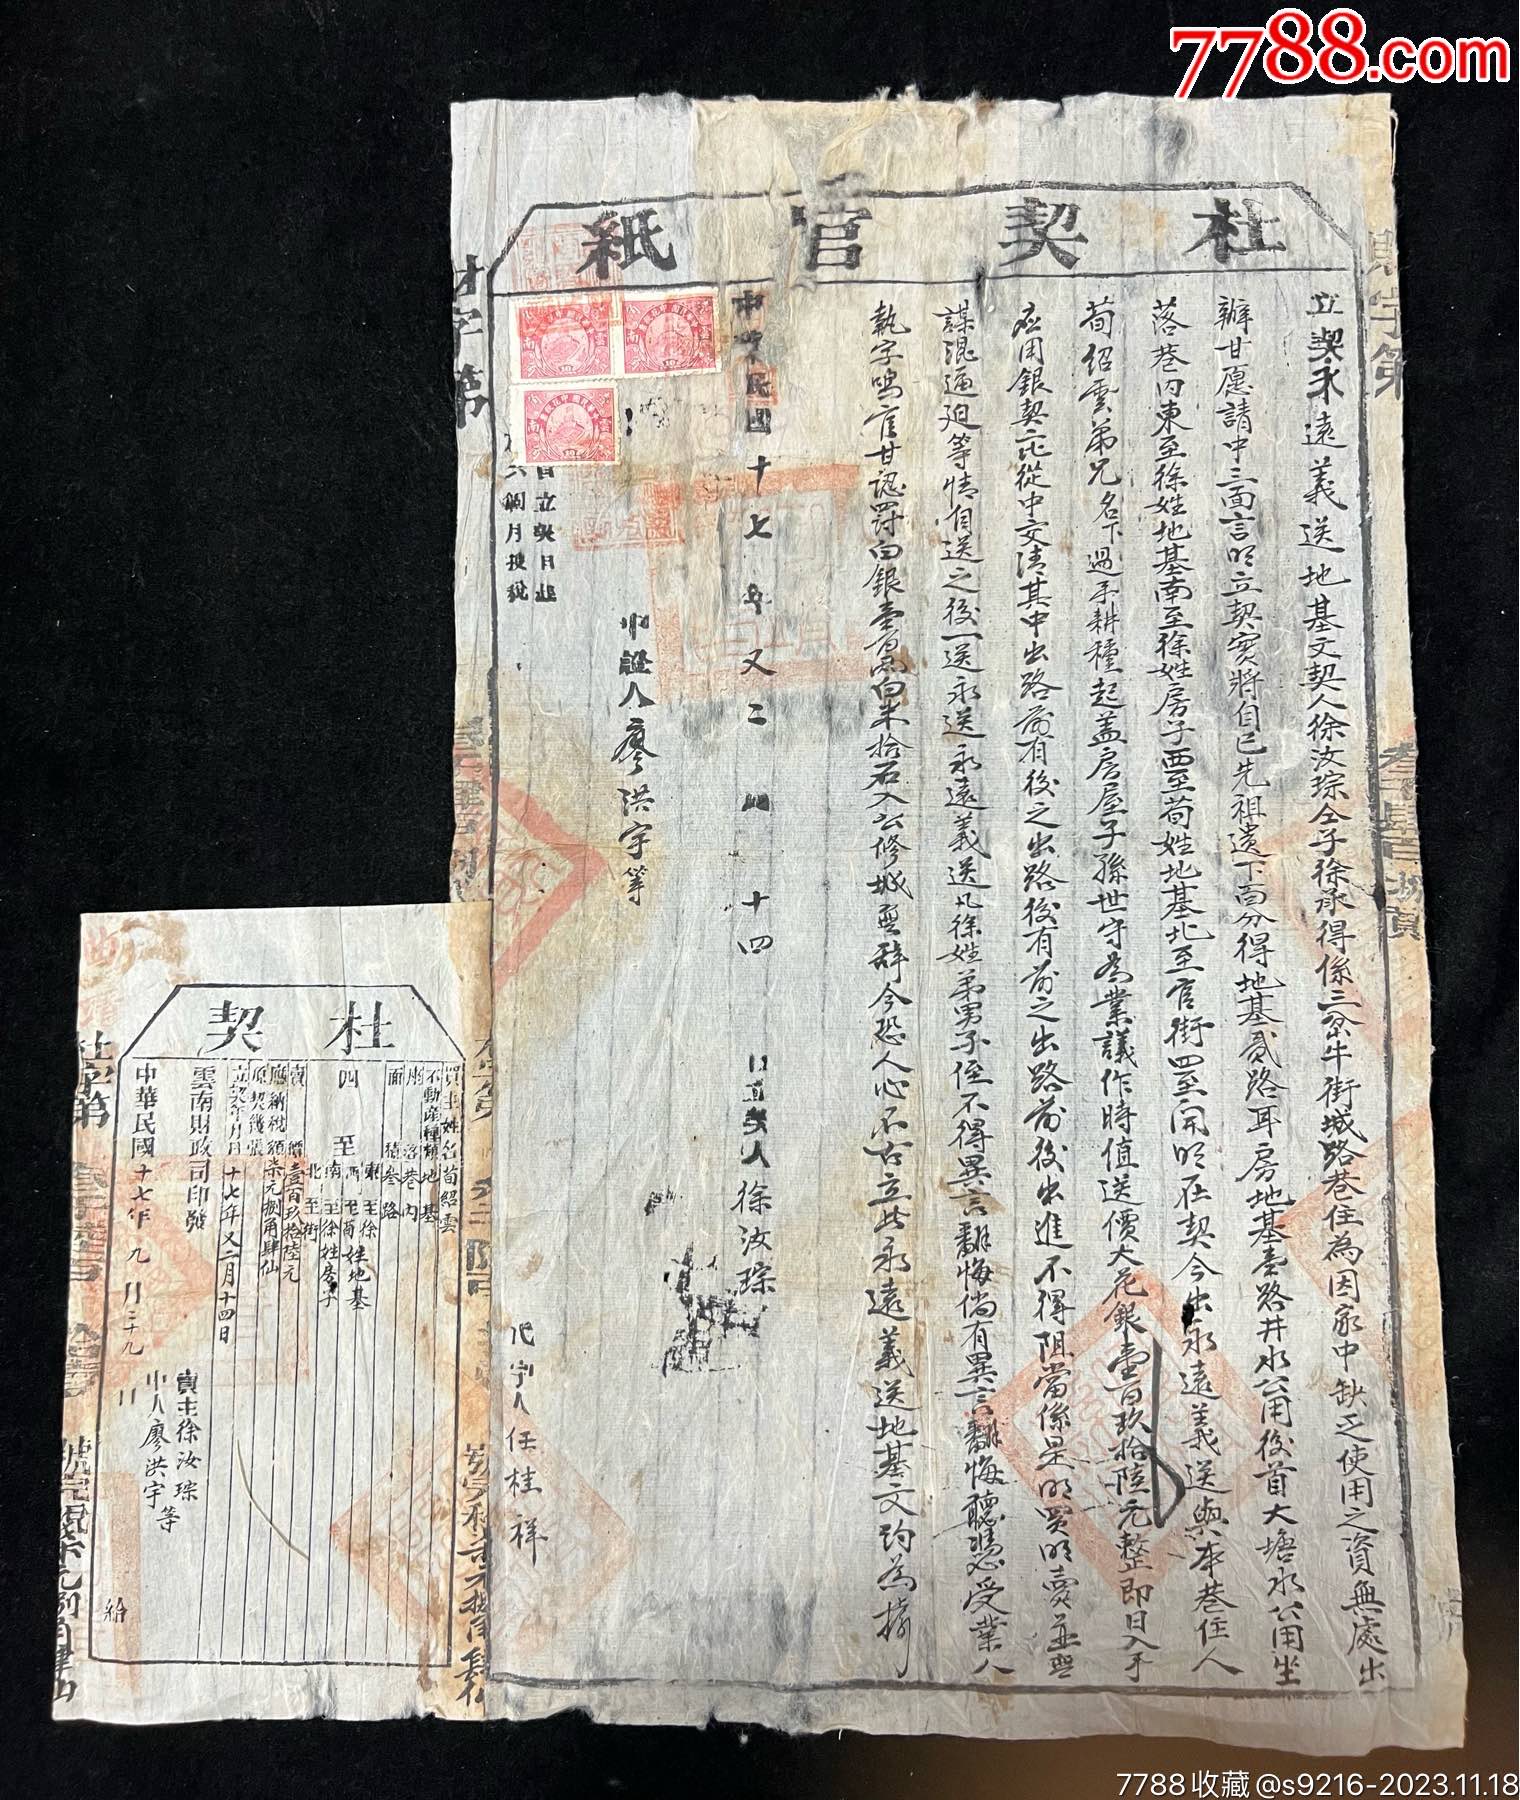 7788.com
杜契官紙
立契永遠義送地基文契人徐汝琮仝子徐承得係三岔牛街城路巷住為因家中缺乏使用之資無處出
辦甘愿請中三面言明立契實將自己先祖遺下面分得地基貳路耳房地基壹路井水公用後首大塘水公用坐
落巷内東至徐姓地基南至徐姓房子西至荀姓地基北至官街四至開明在契今出永遠義送與本巷住人
荀紹雲弟兄名下過手耕種起盖房屋子孫世守為業議作時值送價大花銀壹百玖拾陸元整即日入手
应用銀契比從中交清其中出路前有後之出路後有前之出路前後出進不得阻當係是明買明賣並無
謀混逼廹等情自送之後一送永送永遠義送凡徐姓弟男子侄不得異言翻悔倘有異言翻悔聽憑受業人
執字鳴官甘認罸白銀壹百兩白米拾石入公修城無辭今恐人心不古立此永遠義送地基文約為據
中華民國十七年又二月十四日立契人徐汝琮
中證人廖洪宇等
自立契日起
六個月投稅
代字人任桂祥
財字第
杜契
買主姓名荀紹雲
不動産種類地基
座落巷内
面積叁路
四至
東至徐姓地基
西至荀姓地基
南至徐姓房子
北至街
賣價壹百玖拾陸元
應納稅額柒元捌角肆仙
原契幾張
立契年月日十七年又二月十四日
雲南財政司印發
中華民國十七年九月二十九日
賣主徐汝琮
中人廖洪宇等
給
杜字第
7788收藏@s9216-2023.11.18